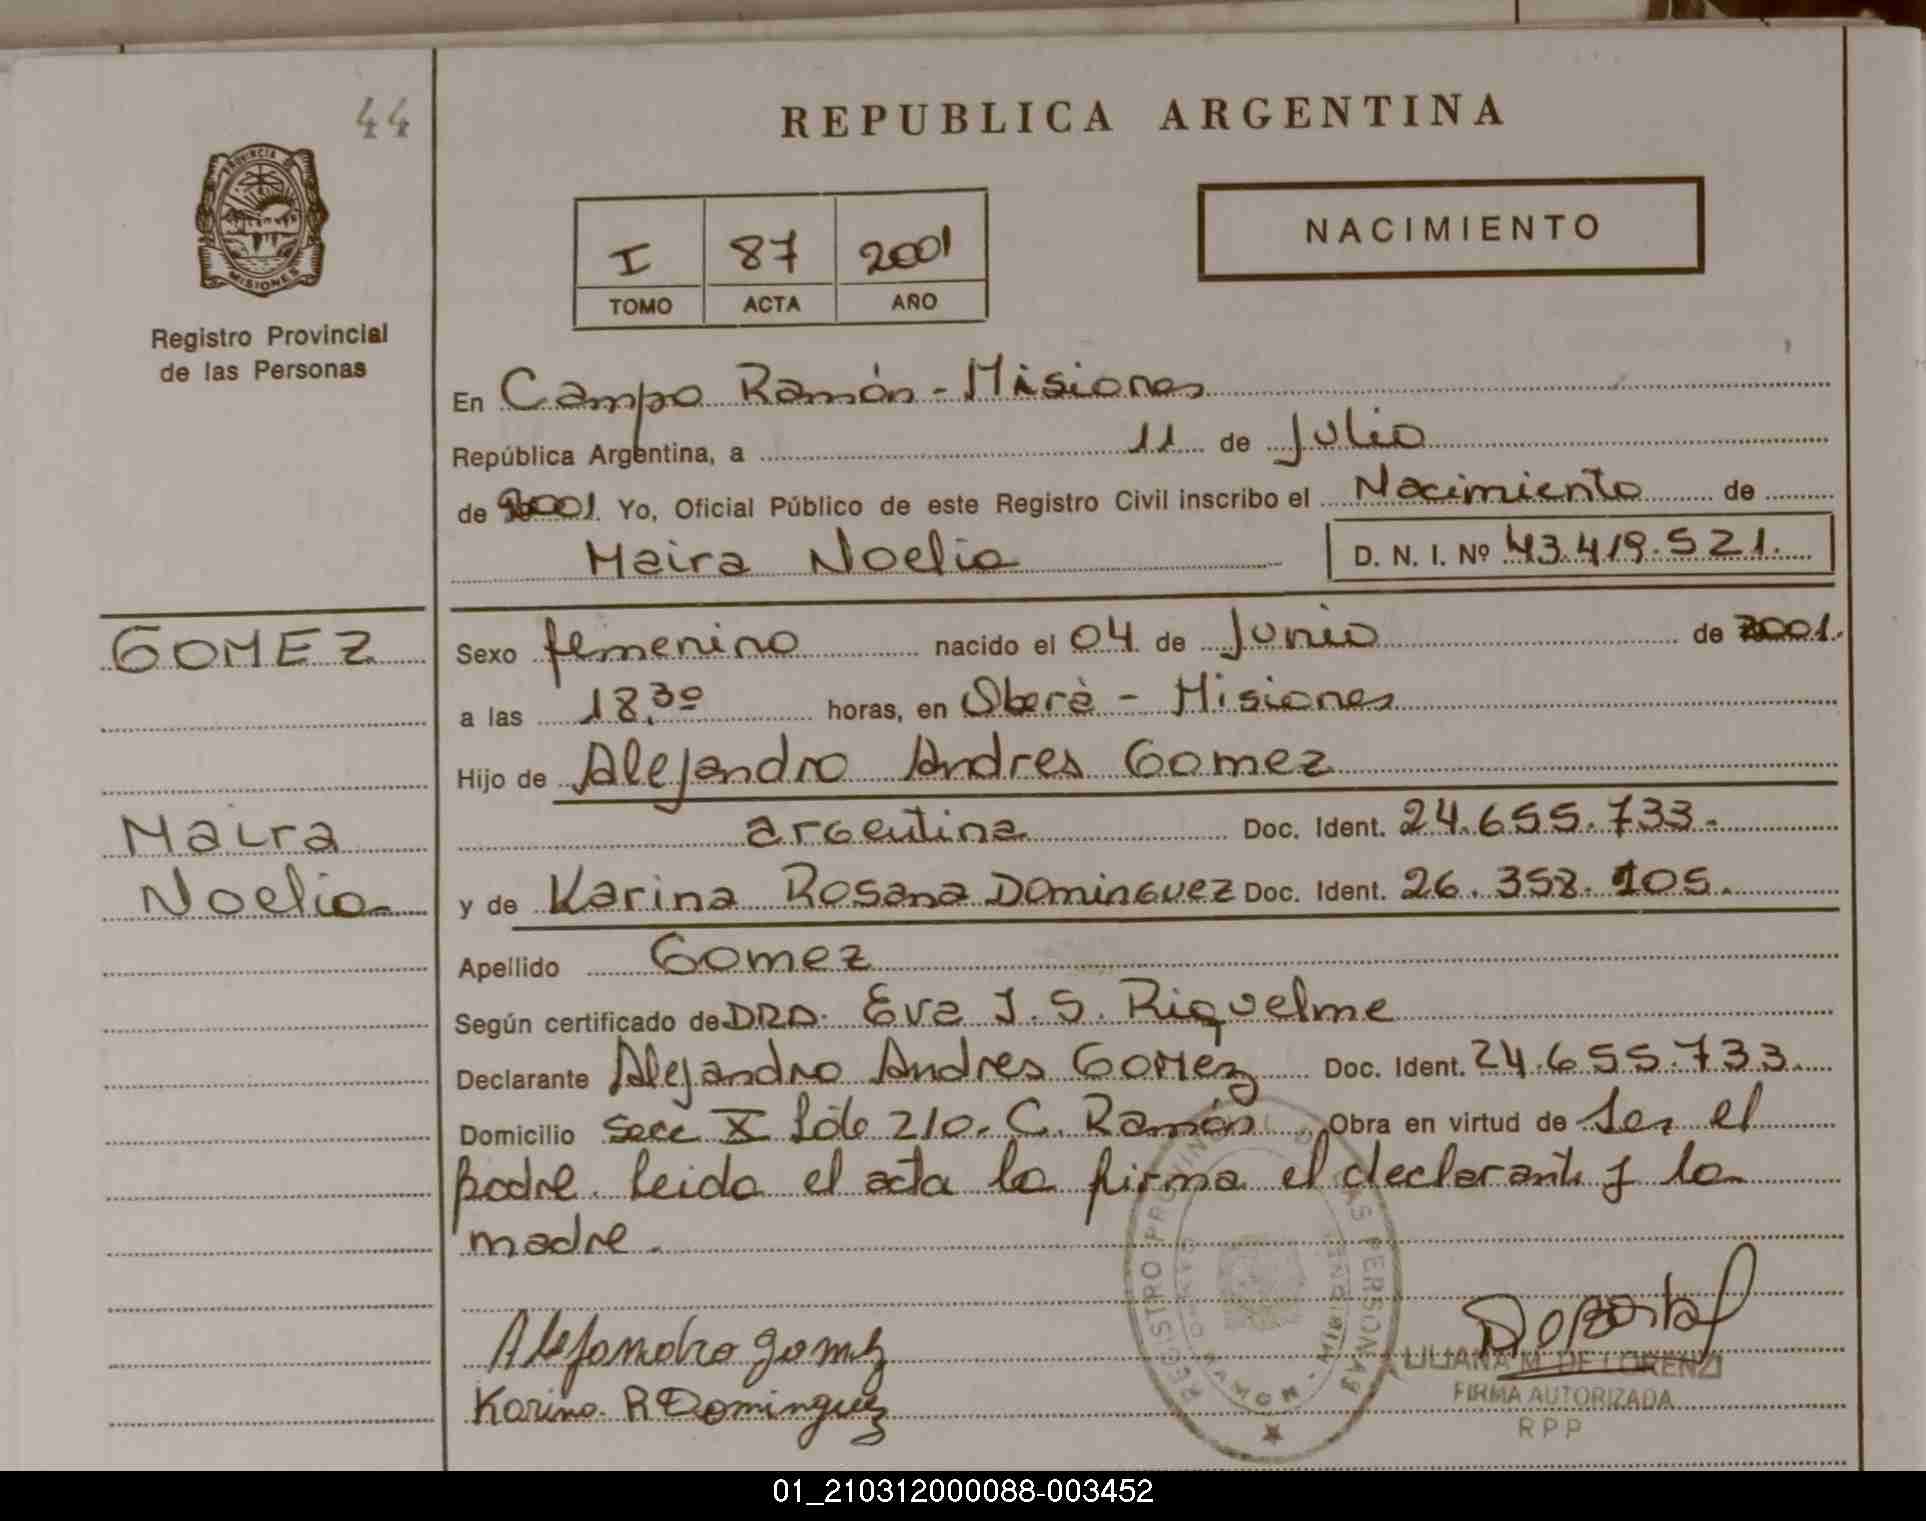 44
REPUBLICA ARGENTINA
PROVINCIA DE
MISIONES
Registro Provincial
de las Personas
I 87 2001
TOMO ACTA AÑO
NACIMIENTO
En Campo Ramón - Misiones
República Argentina, a 11 de Julio
de 2001. Yo, Oficial Público de este Registro Civil inscribo el Nacimiento de
Maira Noelia D. N. I. Nº 43.419.521.
GOMEZ
Maira
Noelia
Sexo femenino nacido el 04 de Junio de 2001.
a las 18.30 horas, en Oberà - Misiones
Hijo de Alejandro Andres Gomez
argentina Doc. Ident. 24.655.733.
y de Karina Rosana Dominguez Doc. Ident. 26.358.105.
Apellido Gomez
Según certificado de DRA. Eva J. S. Riquelme
Declarante Alejandro Andres GOMez Doc. Ident. 24.655.733.
Domicilio Secc X Lote 210. C. Ramón Obra en virtud de Ser el
padre. Leida el acta la firma el declarante y la
madre.
Alejandro gomez
Karina. R Dominguez
REGISTRO PROVINCIAL DE LAS PERSONAS
CAMPO RAMON - MISIONES
LILIANA M. DE LORENZI
FIRMA AUTORIZADA
R P P
01_210312000088-003452